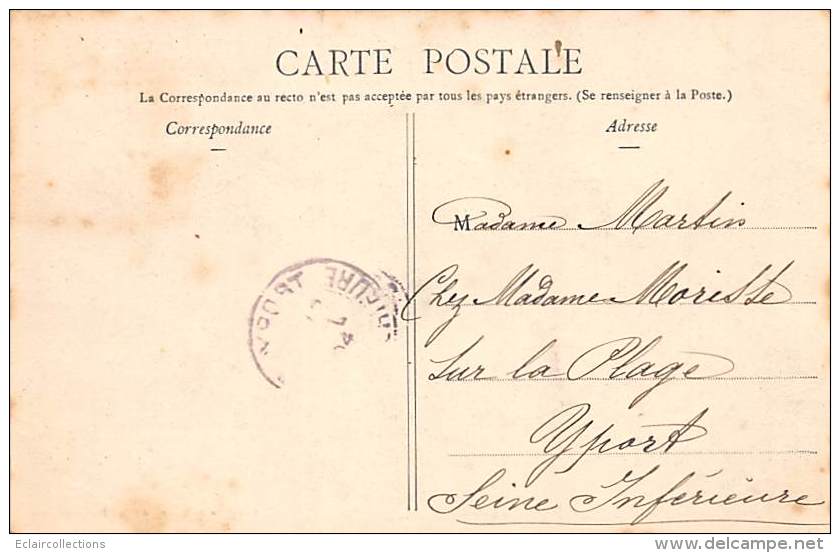 CARTE POSTALE
La Correspondance au recto n'est pas acceptée par tous les pays étrangers. (Se renseigner à la Poste.)
Correspondance
Adresse
Madame Martin
Chez Madame Morisse
Sur la Plage
Yport
Seine Inférieure
YPORT
Eclaircollections
www.delcampe.net